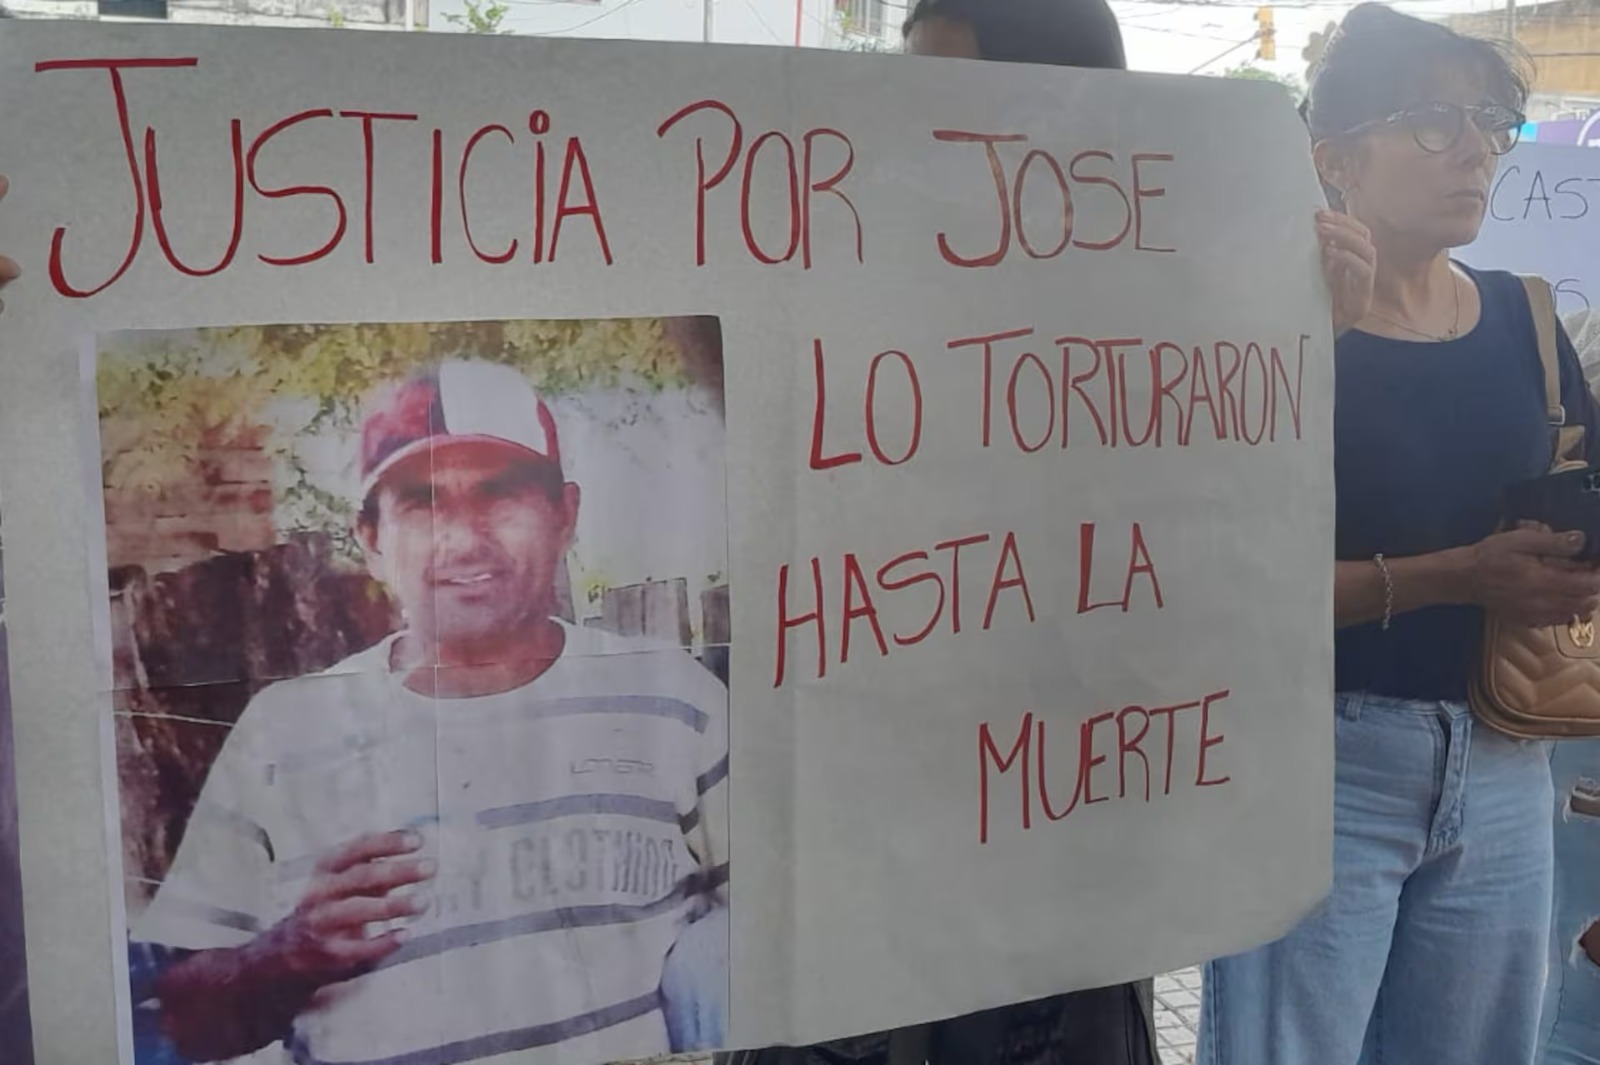 JUSTICIA POR JOSE
LO TORTURARON
HASTA LA
MUERTE
CLOTHING
CAST